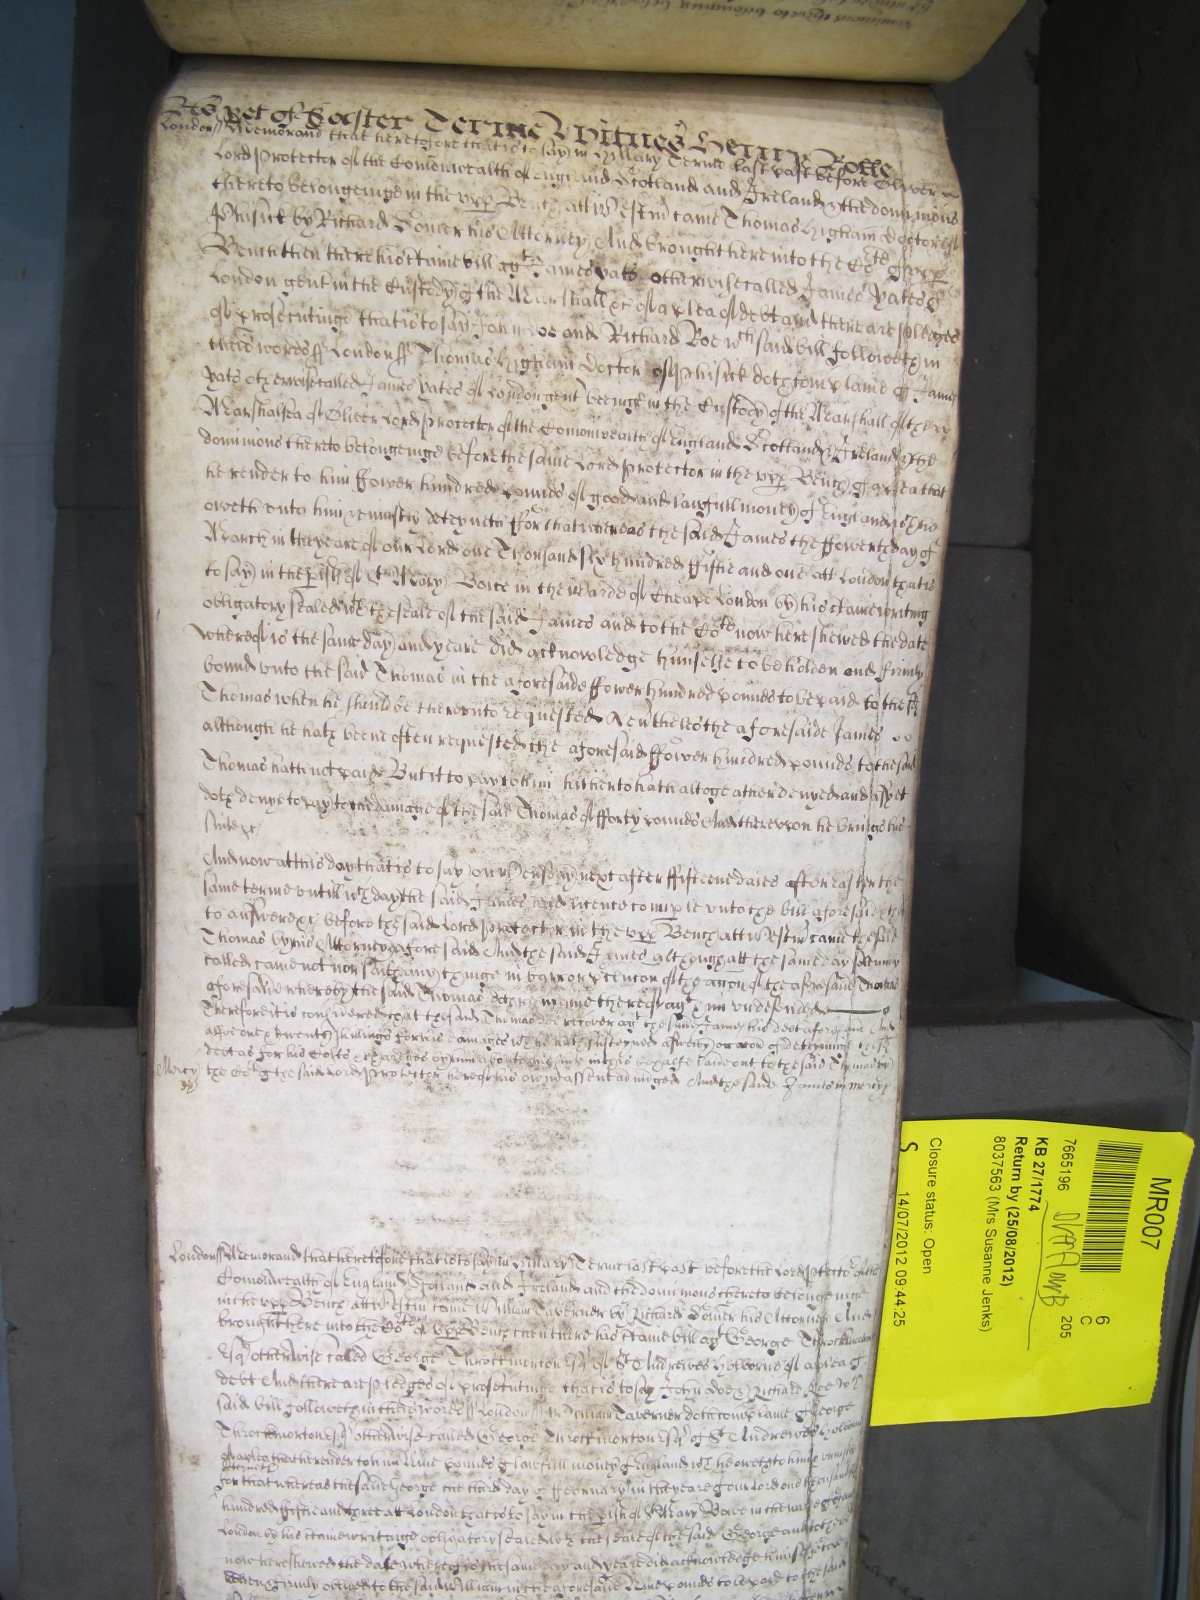 As yet of Easter Terme Witnes Henry Rolle
London ss Memorand that heretofore that is to say in Hillary Terme last past before Oliver
Lord Protector of the Comonwealth of England Scotland and Ireland & the dominions
thereto belongeinge in the upp Bench att Westm came Thomas Higham Doctor of
Phisick by Richard Bower his Attorney And brought here into the Cort of upp
Bench then there his certaine bill agt James Yats otherwise called James Yates of
London gent in the Custody of the Marshall &c of a plea of debt and there are pledges
of prosecutinge that is to say John Doe and Richard Roe wch said bill followeth in
these words ss London ss Thomas Higham Doctor of Phisick doth complaine of James
Yats otherwise called James Yates of London gent beeinge in the Custody of the Marshall of the
Marshalsea of Oliver Lord Protector of the Comonwealth of England Scotland & Ireland & the
dominions thereto belongeinge before the same Lord Protector in the upp Bench of a plea that
he render to him ffower hundred pounds of good and lawfull money of England wch he
oweth unto him & unjustly deteyneth ffor that whereas the said James the ffowerth day of
March in the yeare of our Lord one Thousand six hundred ffiftie and one att London that is
to say in the pish of St Mary Bowe in the Warde of Cheape London by his certaine writing
obligatory sealed wth the seale of the said James and to the Cort now here shewed the date
whereof is the same day and yeare did acknowledge himselfe to be holden and firmly
bound unto the said Thomas in the aforesaide ffower hundred pounds to be paid to the sd
Thomas when he should be thereunto requested Neverthelesthe aforesaide James
although he hath beene often requested the aforesaid ffower hundred pounds to the said
Thomas hath not paide But it to pay to him hitherto hath altogeather denyed and as yet
doth deny to pay to the damage of the said Thomas of fforty pounds And thereupon he brings his
suite &c
And now at this day that is to say on Wensday next after ffifteene daies of Easter the
same terme untill wch day the said James had licence to imple unto the bill aforesaid &
to answere &c before the said Lord Protector in the upp Bench att Westm came the said
Thomas by his Attorney aforesaid And the said James although att the same day solemnly
called came not nor saith any thinge in barr or preclusion of the accon of the aforesaid Thomas
aforesaide whereby the said Thomas doth remaine thereof agt him undefended
Therefore it is considered that the said Thomas doe recover agt the said James his debt aforesaid And
alsoe one & twenty shillings for his damages wch he hath susteyned aswell by occasion of deteininge the sd
debt as for his Costs & charges by him about his suite in this behalfe laid out to the said Thomas by
the Cort of the said Lord Protector here of his owne assent adiudged And the said James in mercy
Mercy
London ss Memorand that heretofore that is to say in Hillary Terme last past before the Lord Protector of the
Comonwealth of England Scotland and Ireland and the dominions thereto belongeinge
in the upp Bench att Westm came William Taverner by Richard Bower his Attorney And
brought here into the Cort of upp Bench then there his certaine bill agt George Throckmorton
Esqr otherwise called George Throckmorton Esqr of St Andrewes Holborne of a plea of
debt And there are pledges of prosecutinge that is to say John Doe & Richard Roe wch
said bill followeth in these words ss London ss William Taverner doth complaine of George
Throckmorton Esqr otherwise called George Throckmorton Esqr of St Andrewes Holborne
of a plea that he render to him Nine pounds of lawfull money of England wch he oweth to him & unjustly
deteyneth
for that whereas the said George the third day of ffebruary in the yeare of our Lord one thousand six
hundred ffiftie and three at London that is to say in the pish of St Mary Bowe in the warde of Cheape
London by his certaine writinge obligatory sealed wth the seale of the said George and to the Cort
now here shewed the date whereof is the same day and yeare did acknowledge himselfe to
bee firmly obliged to the said William in the aforesaid Nine pounds to be paid to the said
MR007
6
C
205
7665196
KB 27/1774
Return by (25/08/2012)
8037563 (Mrs Susanne Jenks)
Closure status: Open
S 14/07/2012 09:44:25